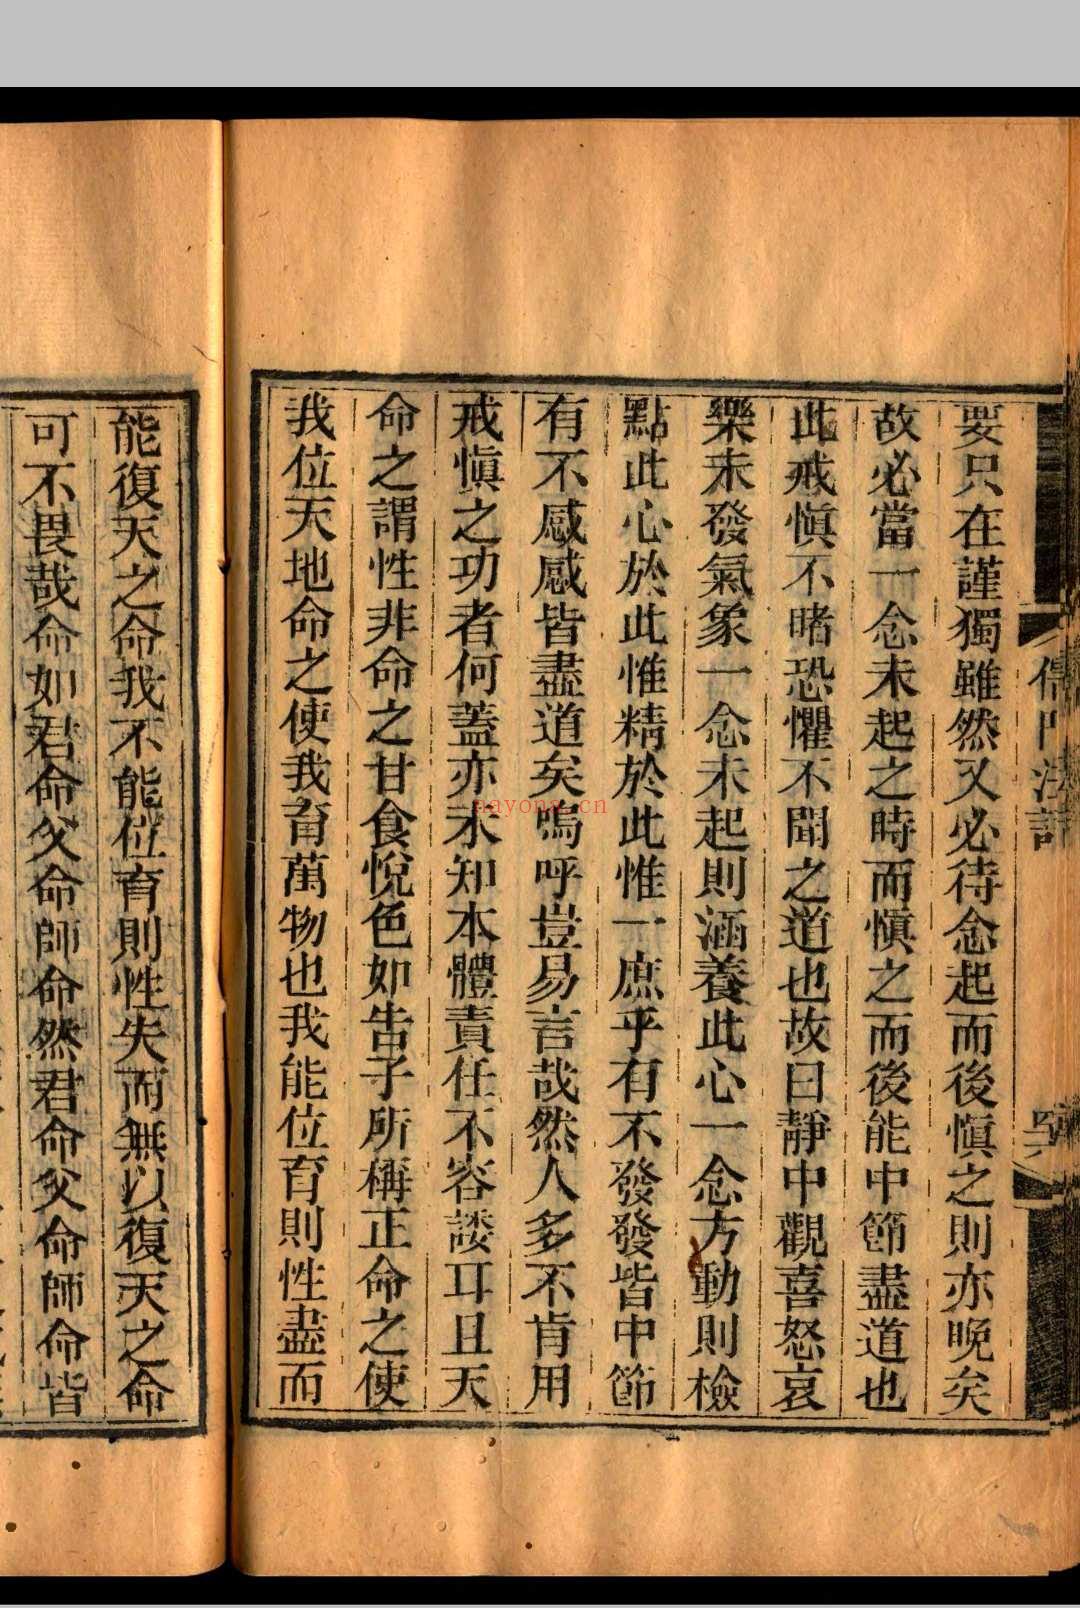 儒門法語
要只在謹獨雖然又必待念起而後慎之則亦晚矣
故必當一念未起之時而慎之而後能中節盡道也
此戒慎不睹恐懼不聞之道也故曰靜中觀喜怒哀
樂未發氣象一念未起則涵養此心一念方動則檢
點此心於此惟精於此惟一庶乎有不發發皆中節
有不感感皆盡道矣嗚呼豈易言哉然人多不肯用
戒慎之功者何蓋亦未知本體責任不容諉耳且天
命之謂性非命之甘食悅色如告子所稱正命之使
我位天地命之使我育萬物也我能位育則性盡而
能復天之命我不能位育則性失而無以復天之命
可不畏哉命如君命父命師命然君命父命師命皆
nayona.cn